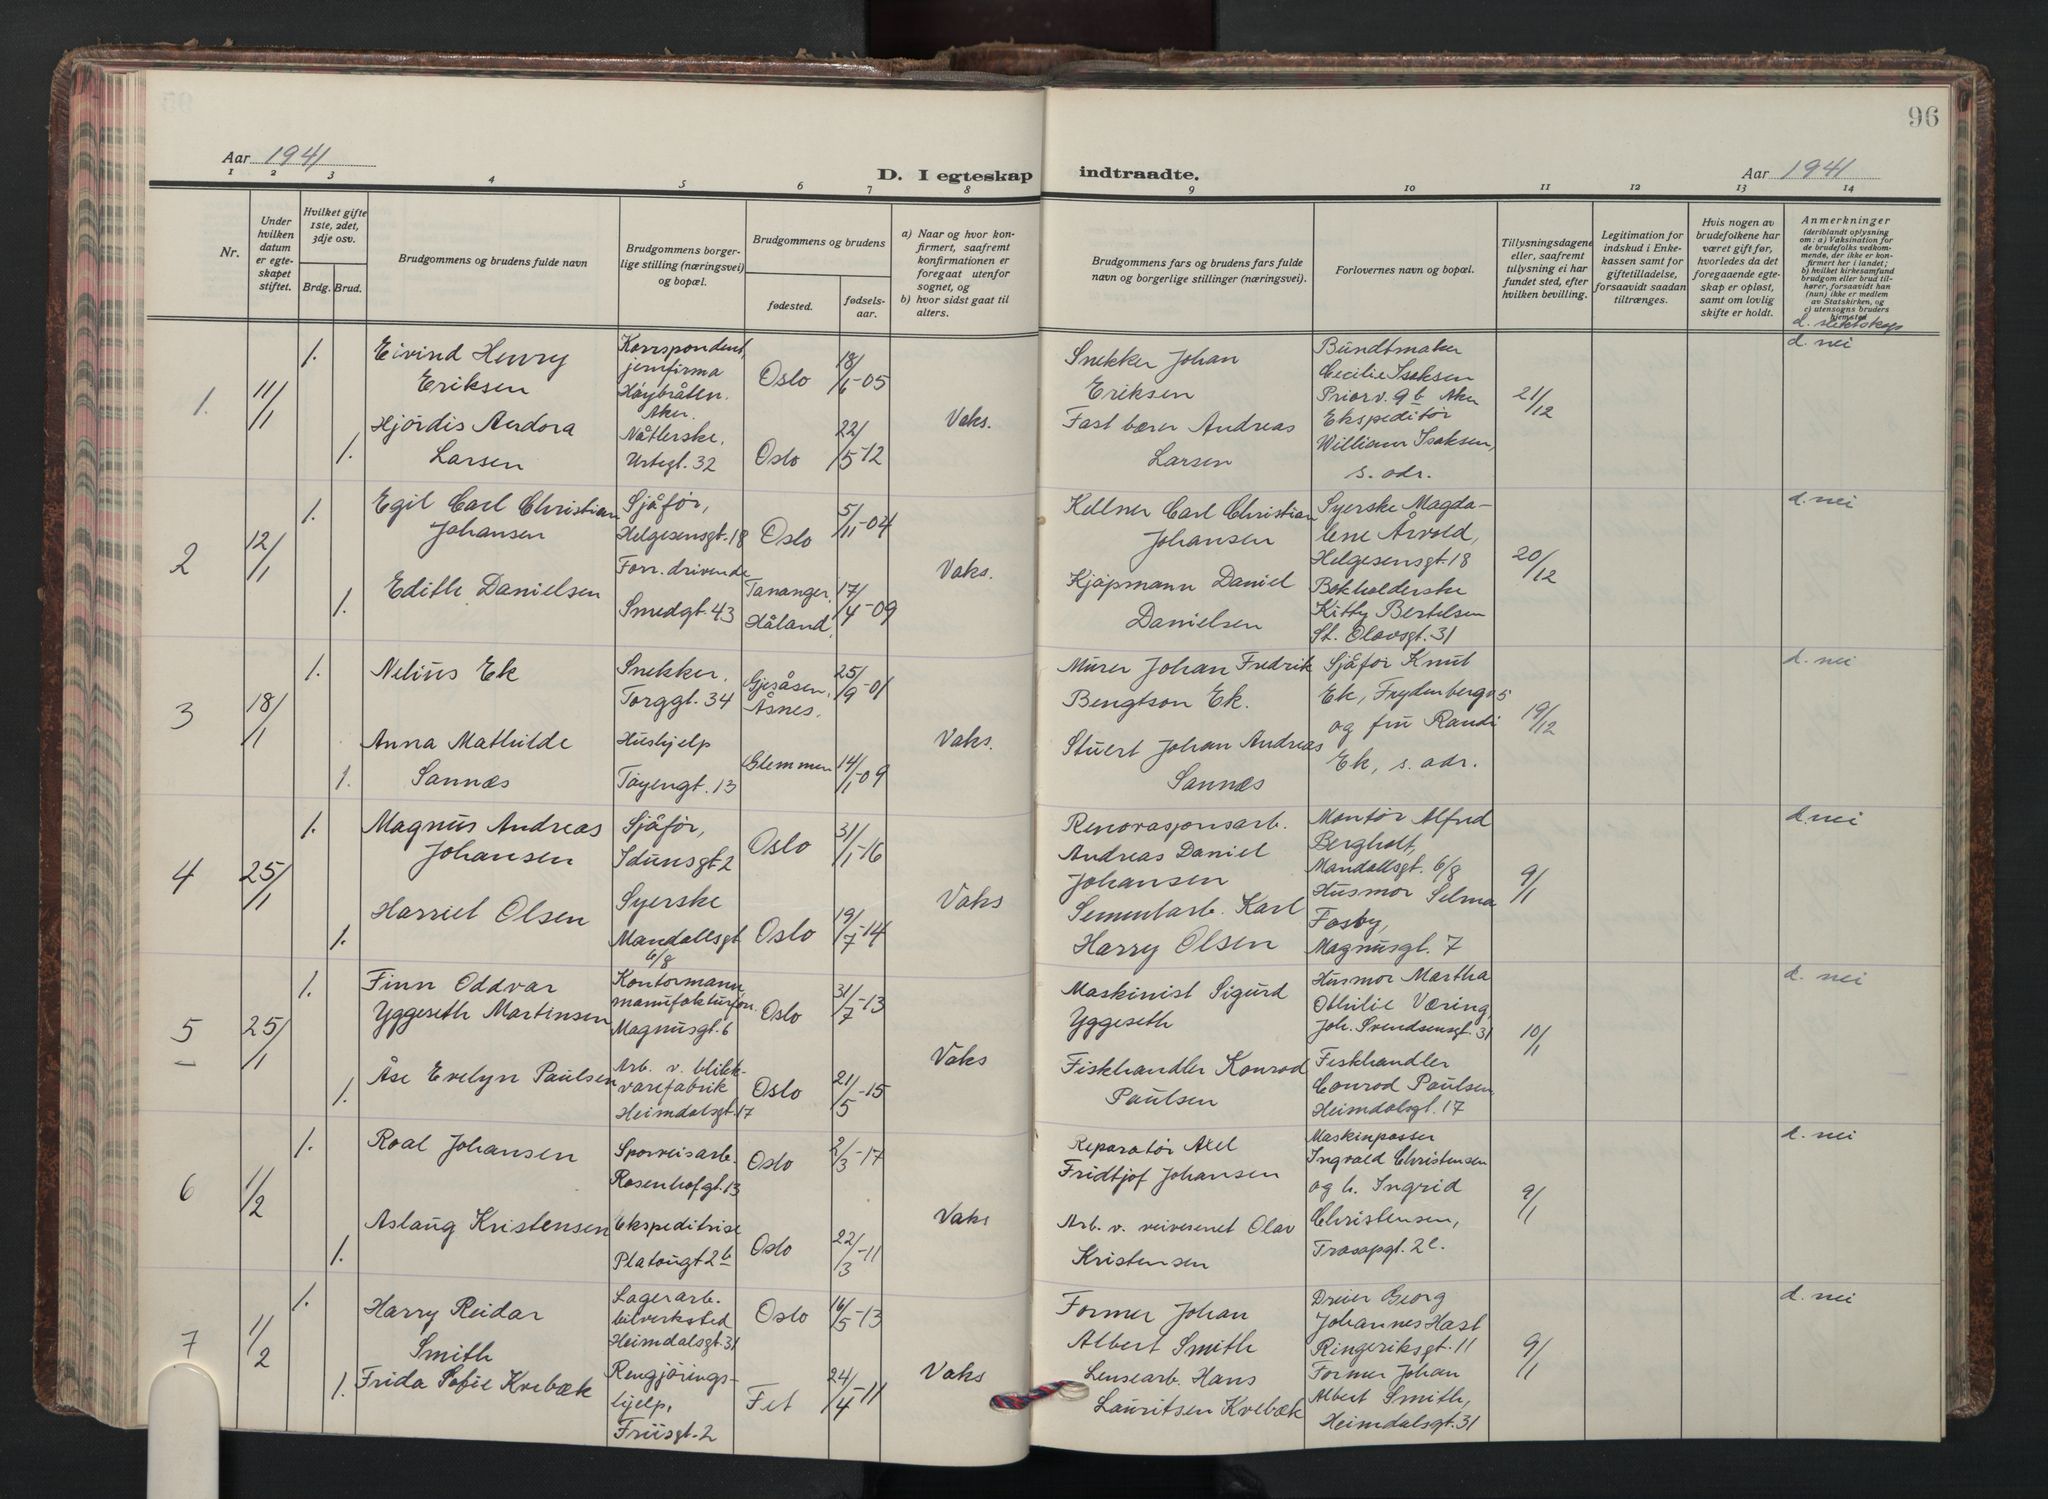 96
Aar 1941
D. I egteskap indtraadte.
Aar 1941
1 2 3 4 5 6 7 8 9 10 11 12 13 14
Nr.
Under
hvilken
datum
er egte-
skapet
stiftet.
Hvilket gifte
1ste, 2det,
3dje osv.
Brdg. Brud.
Brudgommens og brudens fulde navn
Brudgommens borger-
lige stilling (næringsvei)
og bopæl.
Brudgommens og brudens
fødested.
fødsels-
aar.
a) Naar og hvor kon-
firmert, saafremt
konfirmationen er
foregaat utenfor
sognet, og
b) hvor sidst gaat til
alters.
Brudgommens fars og brudens fars fulde
navn og borgerlige stillinger (næringsvei).
Forlovernes navn og bopæl.
Tillysningsdagene
eller, saafremt
tillysning ei har
fundet sted, efter
hvilken bevilling.
Legitimation for
indskud i Enke-
kassen samt for
giftetilladelse,
forsaavidt saadan
tiltrænges.
Hvis nogen av
brudefolkene har
været gift før,
hvorledes da det
foregaaende egte-
skap er opløst,
samt om lovlig
skifte er holdt.
Anmerkninger
(deriblandt oplysning
om: a) Vaksination for
de brudefolks vedkom-
mende, der ikke er kon-
firmert her i landet;
b) hvilket kirkesamfund
brudgom eller brud til-
hører, forsaavidt han
(hun) ikke er medlem
av Statskirken, og
c) utensogns bruders
hjemsted
d. slektskap
1.
11/1
1.
Eivind Henry
Eriksen
Korrspondent,
jernfirma
Høybråten.
Aker.
Oslo
18/6-05
1.
Hjördis Andora
Larsen
Nåtlerske,
Urtegt. 32
Oslo
22/5-12
Vaks.
Snekker Johan
Eriksen
Fast bærer Andreas
Larsen
Bundtmaker
Cecilie Isaksen
Priorv. 9b Aker
Ekspeditør
William Isaksen,
s. adr.
21/12
d. nei
2
12/1
1.
Egil Carl Christian
Johansen
Sjåfør,
Helgesensgt. 18
Oslo
5/11-04
1.
Edith Danielsen
Forr. drivende
Smedgt. 43
Tananger,
Håland,
17/4-09
Vaks.
Kellner Carl Christian
Johansen
Kjøpmann Daniel
Danielsen
Syerske Magda-
lene Arvold,
Helgesensgt. 18
Bokholderske
Kitty Bertelsen
St. Olavsgt. 31
20/12
d. nei
3
18/1
1.
Nelius Ek
Snekker,
Torggt. 34
Gjesåsen,
Åsnes.
25/9-01
1.
Anna Mathilde
Sannæs
Hushjelp
Tøyengt. 13
Glemmen
14/1-09
Vaks.
Murer Johan Fredrik
Bengtson Ek.
Stuert Johan Andreas
Sannæs
Sjåfør Knut
Ek, Frydenbergv 5
og fru Randi
Ek, s. adr.
19/12
d. nei
4
25/1
1.
Magnus Andreas
Johansen
Sjåfør,
Idunsgt. 2
Oslo
31/1-16
1.
Harriet Olsen
Syerske
Mandallsgt
6/8
Oslo
19/7-14
Vaks
Renovasjonsarb.
Andreas Daniel
Johansen
Sementarb. Karl
Harry Olsen
Montør Alfred
Bergholt,
Mandallsgt. 6/8
Husmor Selma
Fosby,
Magnusgt. 7
9/1
d. nei
5
25/1
1.
Finn Oddvar
Yggeseth Martinsen
Kontormann
manufakturforr.
Magnusgt. 6
Oslo
31/7-13
1.
Åse Evelyn Paulsen
Arb. v. blikk-
varefabrik
Heimdalsgt. 17
Oslo
21/5-15
Vaks
Maskinist Sigurd
Yggeseth
Fiskhandler Konrad
Paulsen
Husmor Martha
Othilie Væring,
Joh. Svendsensgt. 31
Feskhandler
Conrad Paulsen,
Heimdalsgt. 17
10/1
d. nei
6
1/2
1.
Roal Johansen
Sporveisarb.
Rosenhofgt. 13
Oslo
2/3-17
1.
Aslaug Kristensen
Ekspeditrise
Platougt 2b
Oslo
22/3-11
Vaks
Reparatør Axel
Fridtjof Johansen
Arb. v. veivesenet Olav
Kristensen
Maskinpasser
Ingvald Christensen
og h. Ingrid
Christensen,
Trasopgt. 2c.
9/1
d. nei
7
1/2
1.
Harry Reidar
Smith
Lagerarb.
bilverksted
Heimdalsgt. 31
Oslo
16/5-13
1.
Frida Sofie Kvebæk
Rengjörings-
hjelp,
Friisgt. 2
Fet
24/4-11
Vaks
Former Johan
Albert Smith
Lensearb. Hans
Lauritsen Kvebæk
Dreier Georg
Johannes Hast
Ringeriksgt. 11
Former Johan
Albert Smith,
Heimdalsgt. 31
9/1
d. nei